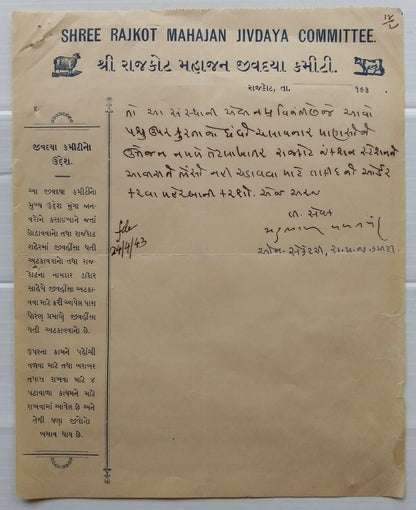 SHREE RAJKOT MAHAJAN JIVDAYA COMMITTEE.
શ્રી રાજકોટ મહાજન જીવદયા કમીટી.
રાજકોટ, તા. ૧૯૩
જીવદયા કમીટીનો
ઉદ્દેશ.
આ જીવદયા કમીટીનો
મુખ્ય ઉદ્દેશ મુંગા જના-
વરોને કસાઇખાને જતાં
છોડાવવાનો તથા રાજકોટ
શહેરમાં જીવહીંસા થતી
અટકાવવાનો તથા રાજ-
કોટના નામદાર ઠાકોર
સાહેબે જીવહીંસા અટકા-
વવા માટે કરી આપેલ ધારા
ધોરણ પ્રમાણે જીવહીંસા
થતી અટકાવવાનો છે.
ઉપરના કામને પહોંચી
વળવા માટે તથા બરાબર
તપાસ રાખવા માટે ૪
પટાવાળા કાયમને માટે
રાખવામાં આવેલ છે અને
તેથી ઘણા જીવોનો
બચાવ થાય છે.
તો આ સંસ્થાની એવી નમ્ર વિનંતી છે જે આવો
પશુ ઉપર ક્રુરતાનો ધંધો ચલાવનાર
રાજકોટ જંકશન સ્ટેશનને
નહીં ચડાવવા માટે ઓર્ડર
કરવા મહેરબાની કરશો. એજ અરજ
લી. સેવક
file
24/4/43